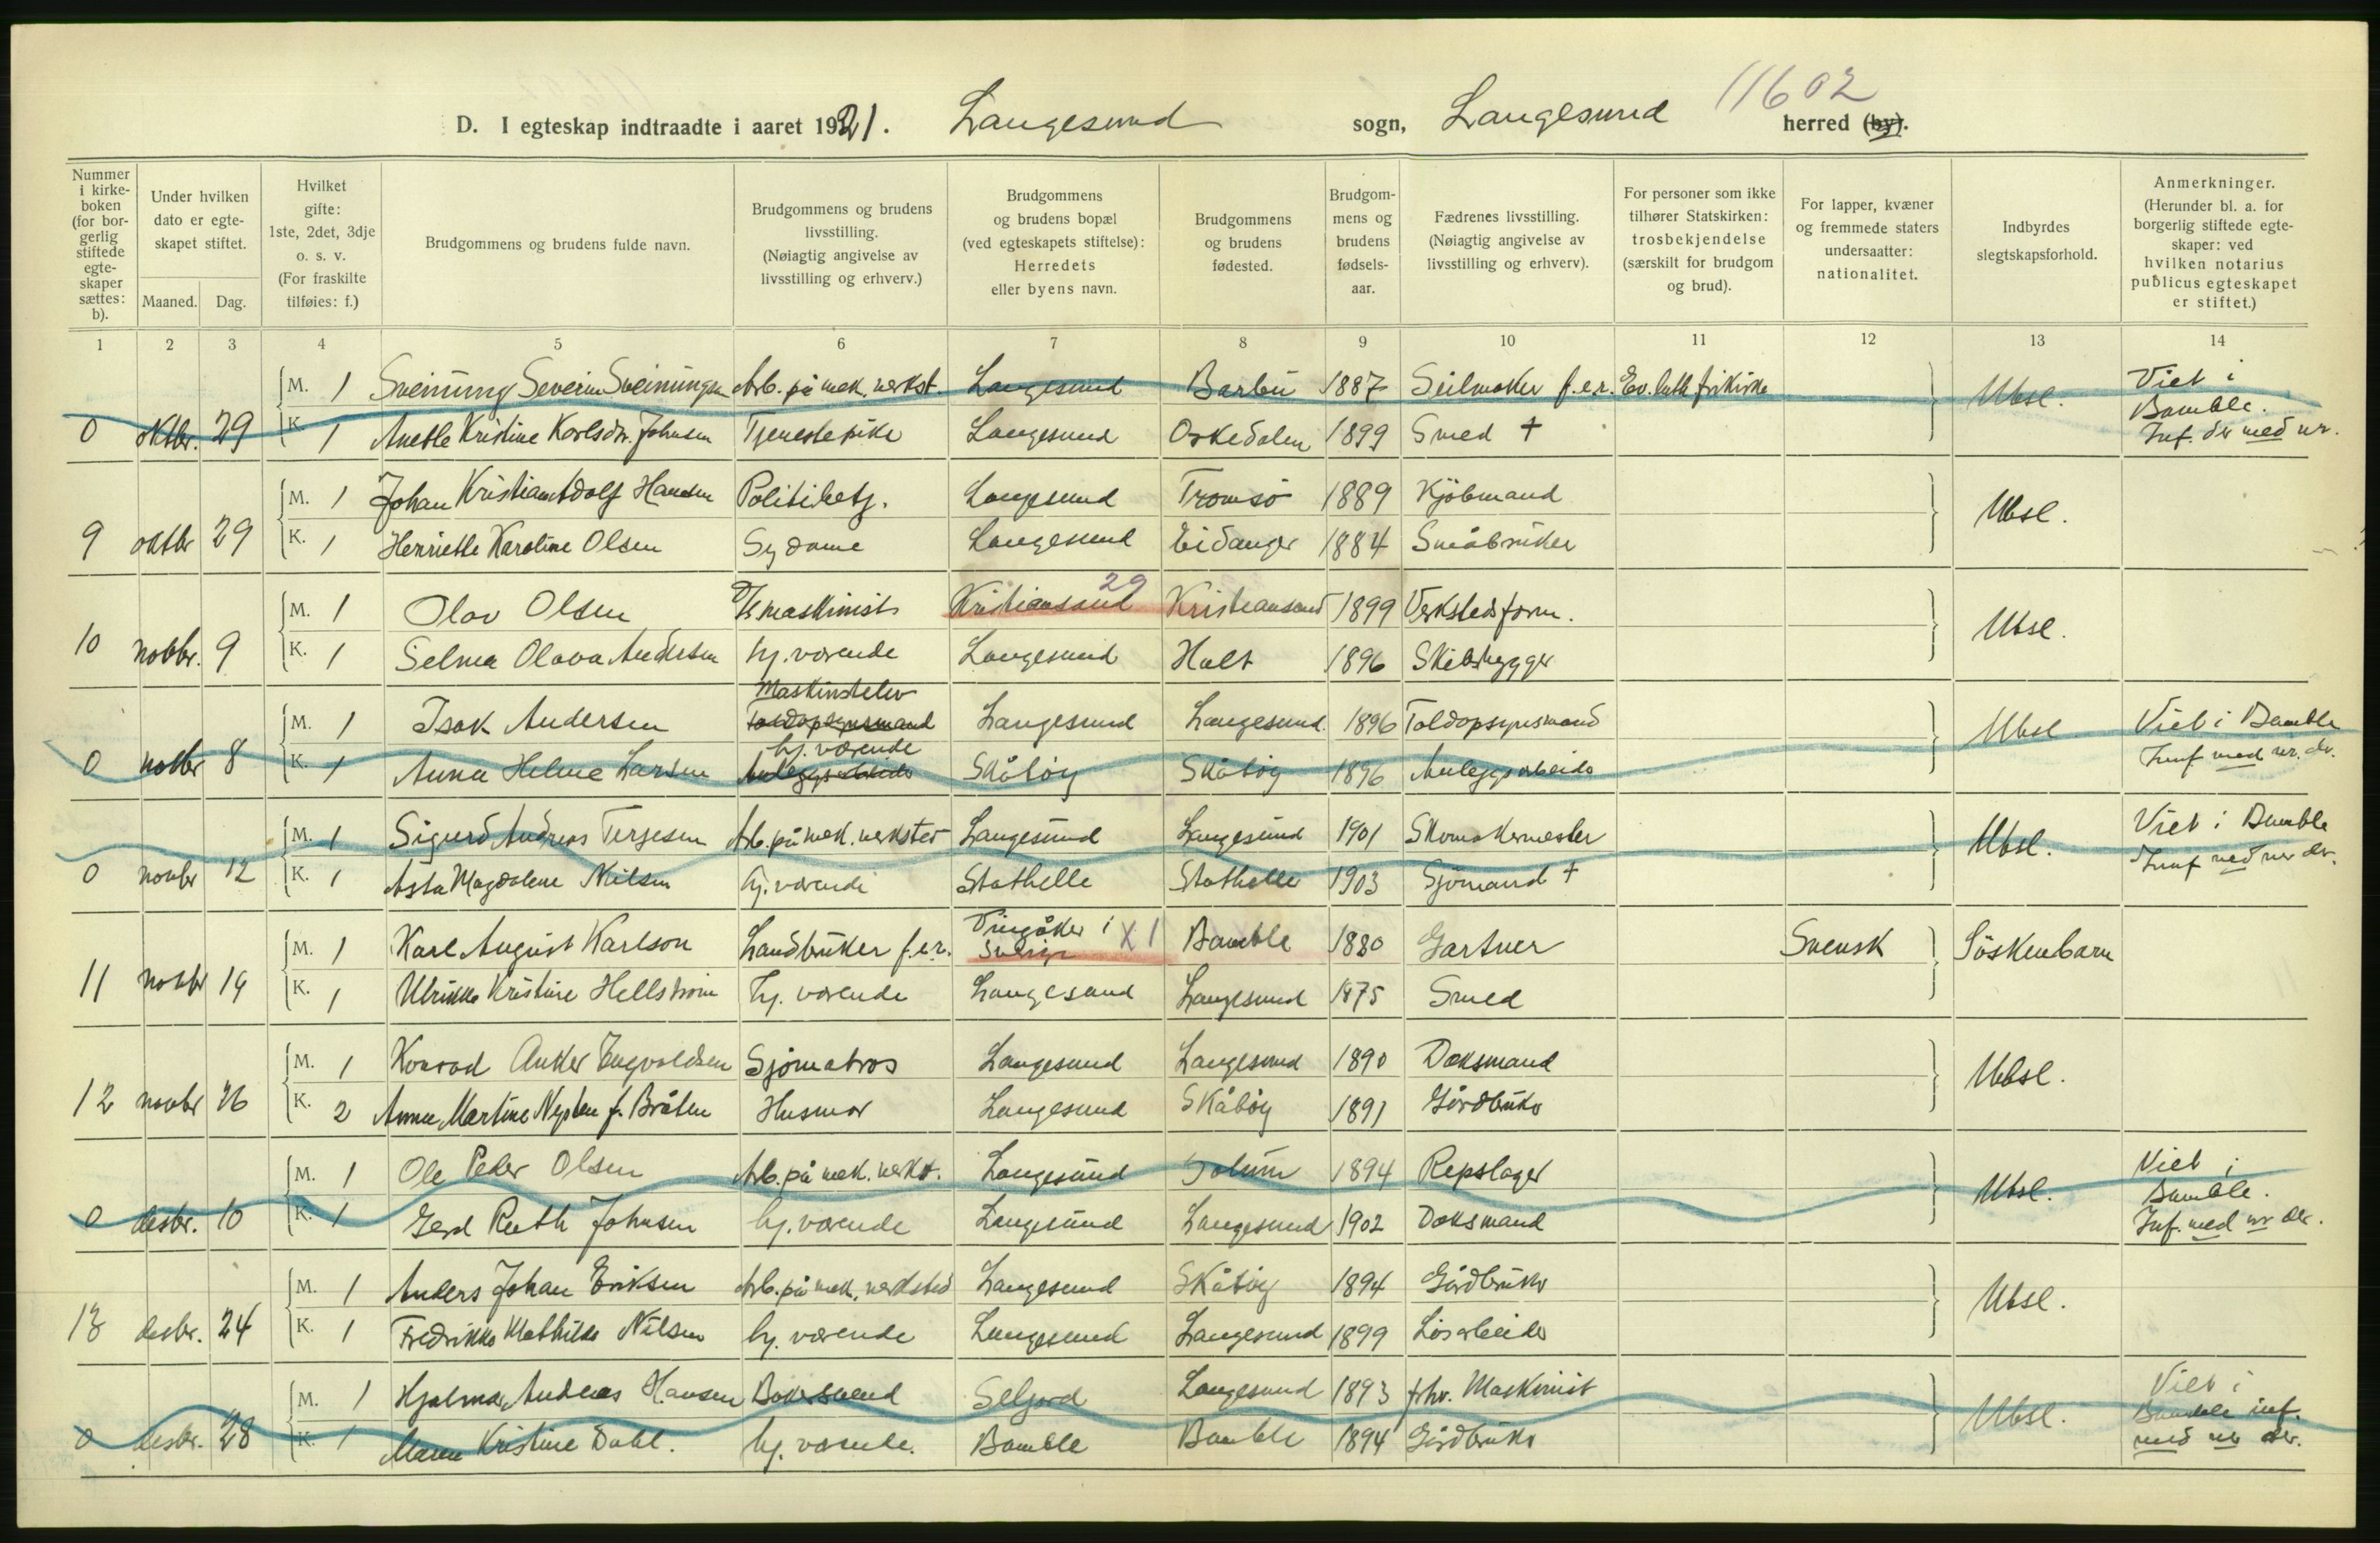 11602
D. I egteskap indtraadte i aaret 1921. Langesund sogn, Langesund herred (by).
Nummer i kirke-boken (for bor-gerlig stiftede egte-skaper sættes: b).
Under hvilken dato er egte-skapet stiftet.
Maaned. Dag.
Hvilket gifte: 1ste, 2det, 3dje o. s. v. (For fraskilte tilføies: f.)
Brudgommens og brudens fulde navn.
Brudgommens og brudens livsstilling. (Nøiagtig angivelse av livsstilling og erhverv.)
Brudgommens og brudens bopæl (ved egteskapets stiftelse): Herredets eller byens navn.
Brudgommens og brudens fødested.
Brudgom-mens og brudens fødsels-aar.
Fædrenes livsstilling. (Nøiagtig angivelse av livsstilling og erhverv).
For personer som ikke tilhører Statskirken: trosbekjendelse (særskilt for brudgom og brud).
For lapper, kvæner og fremmede staters undersaatter: nationalitet.
Indbyrdes slegtskapsforhold.
Anmerkninger. (Herunder bl. a. for borgerlig stiftede egte-skaper: ved hvilken notarius publicus egteskapet er stiftet.)
1 2 3 4 5 6 7 8 9 10 11 12 13 14
M. 1 Sveinung Severin Sveinungsen Arb. på mek. verkst. Langesund Barbu 1887 Seilmaker f.e.r. Ev. luth frikirke Ubsl. Viet i Bamble.
0 oktbr. 29 K. 1 Anette Kristine Karlsdtr. Johnsen Tjenestepike Langesund Oskedalen 1899 Smed + Inf. der med nr.
M. 1 Johan Kristian Adolf Hansen Politibetj. Langesund Tromsö 1889 Kjöbmand Ubsl.
9 oktbr 29 K. 1 Henriette Karoline Olsen Sydame Langesund Eidanger 1884 Småbruker
M. 1 Olav Olsen maskinist Kristiansand 29 Kristiansand 1899 Verkstedsform. Ubsl.
10 novbr. 9 K. 1 Selma Olava Andersen hj. værende Langesund Holt 1896 Skibsbygger
Maskinstelev
M. 1 Isak Andersen Toldopsynsmand Langesund Langesund 1896 Toldopsynsmand Ubsl Viet i Bamble
hj. værende
0 novbr 8 K. 1 Anna Helene Larsen Anleggsarbeider Skåtöy Skåtöy 1896 Anleggsarbeider Innf med nr. der.
M. 1 Sigurd Andreas Terjesen Arb. på mek. verksted Langesund Langesund 1901 Skomakermester Ubsl. Viet i Bamble
0 novbr 12 K. 1 Asta Magdalene Nilsen hj. værende Stathelle Stathelle 1903 Sjömand + Innf med nr der.
M. 1 Karl August Karlson Landbruker f.e.r. Vingåker i Sverige X 1 Bamble 1880 Gartner Svensk Söskenbarn
11 novbr 19 K. 1 Ulrikke Kristine Hellström hj. værende Langesund Langesund 1875 Smed
M. 1 Konrad Anker Engvoldsen Sjömatros Langesund Langesund 1890 Doksmand Ubsl.
12 novbr 26 K. 2 Anne Martine Nysten f. Bråten Husmor Langesund Skåtöy 1891 Gårdbruker
M. 1 Ole Peder Olsen Arb. på mek. verkst. Langesund Solum 1894 Repslager Ubsl. Viet i Bamble.
0 desbr. 10 K. 1 Gerd Ruth Johnsen hj. værende Langesund Langesund 1902 Doksmand Inf. med nr der.
M. 1 Anders Johan Eriksen Arb. på mek. verksted Langesund Skåtöy 1894 Gårdbruker Ubsl.
13 desbr. 24 K. 1 Fredrikke Mathilde Nilsen hj. værende Langesund Langesund 1899 Lösarbeider
M. 1 Hjalmar Andreas Hansen Bakersvend Seljord Langesund 1893 fhv. Maskinist Ubsl. Viet i Bamble inf.
0 desbr. 28 K. 1 Maren Kristine Dahl. hj. værende. Bamble Bamble 1894 Gårdbruker med nr der.